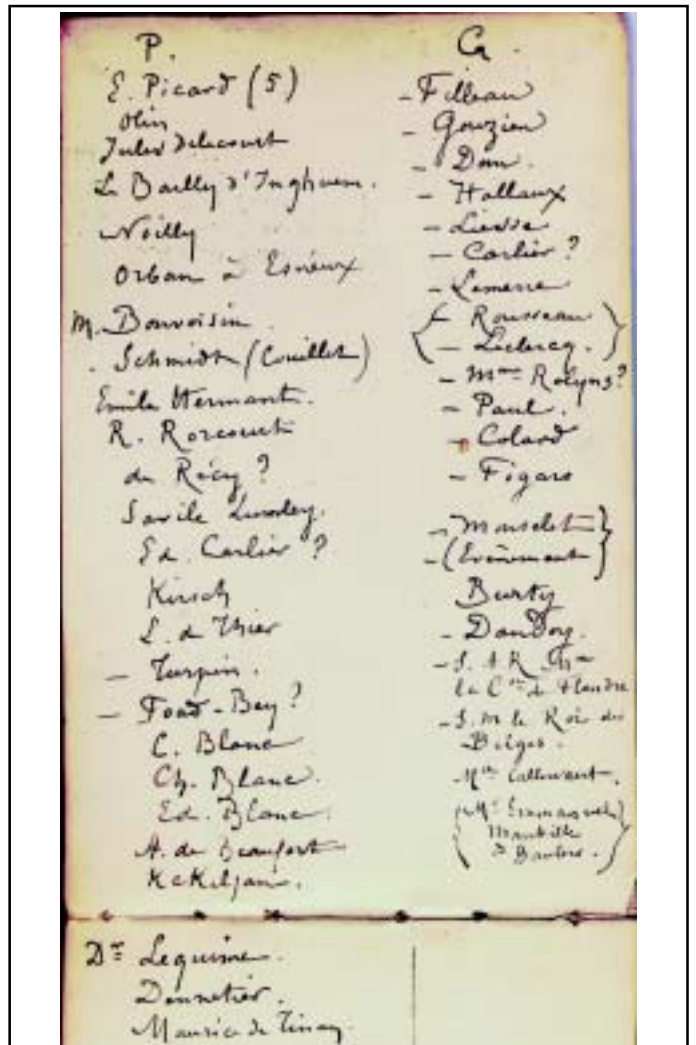 P.
E. Picard (5)
Olin
Jules Delecourt
Le Bailly d'Inghuem.
Noilly
Orban à Esneux
M. Bonvoisin
. Schmidt (Couillet)
Emile Hermant.
R. Rorcourt
de Récy ?
Savile Lumley.
Ed. Carlier ?
Kirsch
L. de Thier
– Turpin.
– Foad-Bey ?
C. Blanc
Ch. Blanc.
Ed. Blanc.
A. de Beaufort
Dre Lequime.
Donnetier.
Maurice de Tinan
G.
– Filleau
– Gouzien
– Dom.
– Hallaux
– Liesse
– Carlier ?
– Lemerre
– Rousseau
– Leclercq.
– Mme Rolyns ?
– Paul.
– Colard
– Figaro
– Monselet
– (Evènement
Burty
– Dandoy.
– S. A. R. Mme
la Csse de Flandre
– S. M. le Roi des
Belges.
– Mlle Callewaert.